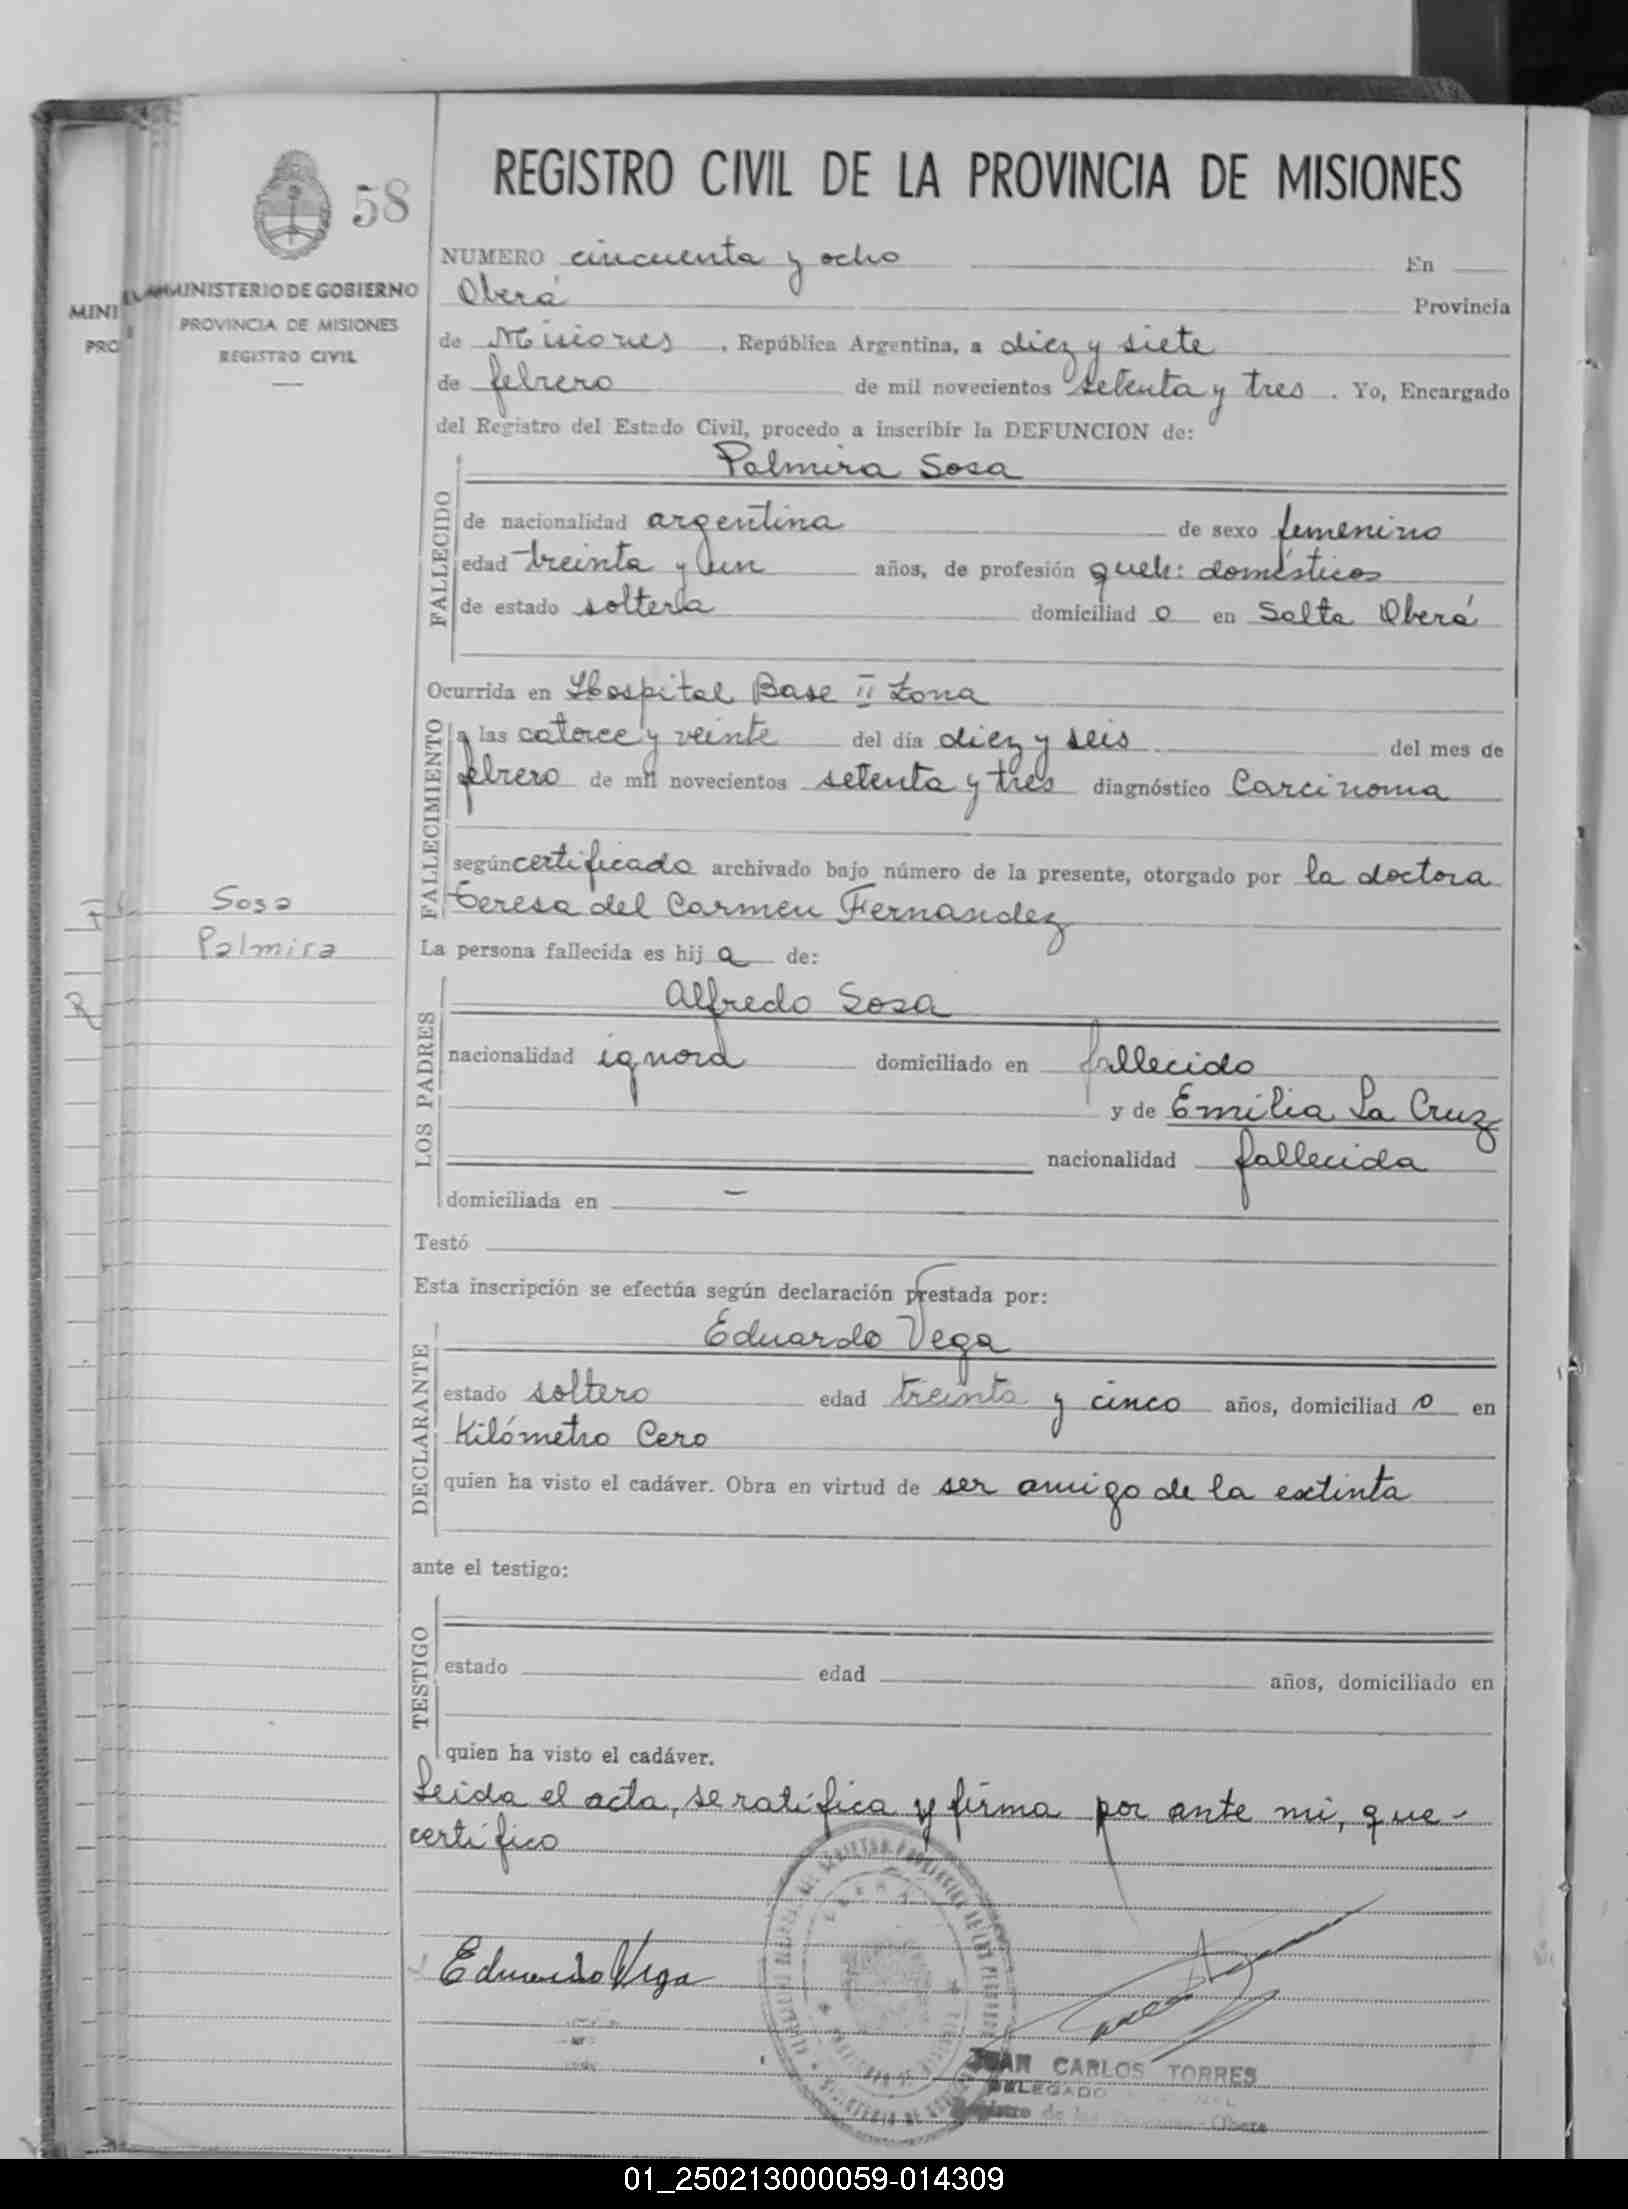 58
MINISTERIO DE GOBIERNO
PROVINCIA DE MISIONES
REGISTRO CIVIL
MINI
PRO
Sosa
Palmira
REGISTRO CIVIL DE LA PROVINCIA DE MISIONES
NUMERO cincuenta y ocho En
Oberá Provincia
de Misiones, República Argentina, a diez y siete
de febrero de mil novecientos setenta y tres. Yo, Encargado
del Registro del Estado Civil, procedo a inscribir la DEFUNCION de:
Palmira Sosa
FALLECIDO
de nacionalidad argentina de sexo femenino
edad treinta y un años, de profesión queh: domésticos
de estado soltera domiciliad o en Salta Oberá
Ocurrida en Hospital Base II Zona
FALLECIMIENTO
a las catorce y veinte del día diez y seis del mes de
febrero de mil novecientos setenta y tres diagnóstico Carcinoma
según certificado archivado bajo número de la presente, otorgado por la doctora
Teresa del Carmen Fernandez
La persona fallecida es hij a de:
LOS PADRES
Alfredo Sosa
nacionalidad ignora domiciliado en fallecido
y de Emilia La Cruz
nacionalidad fallecida
domiciliada en –
Testó
Esta inscripción se efectúa según declaración prestada por:
DECLARANTE
Eduardo Vega
estado soltero edad treinta y cinco años, domiciliad o en
Kilómetro Cero
quien ha visto el cadáver. Obra en virtud de ser amigo de la extinta
ante el testigo:
TESTIGO
estado edad años, domiciliado en
quien ha visto el cadáver.
Leida el acta, se ratifica y firma por ante mi, que-
certifico
Eduardo Vega
JUAN CARLOS TORRES
DELEGADO
Registro de las Oberá
01_250213000059-014309